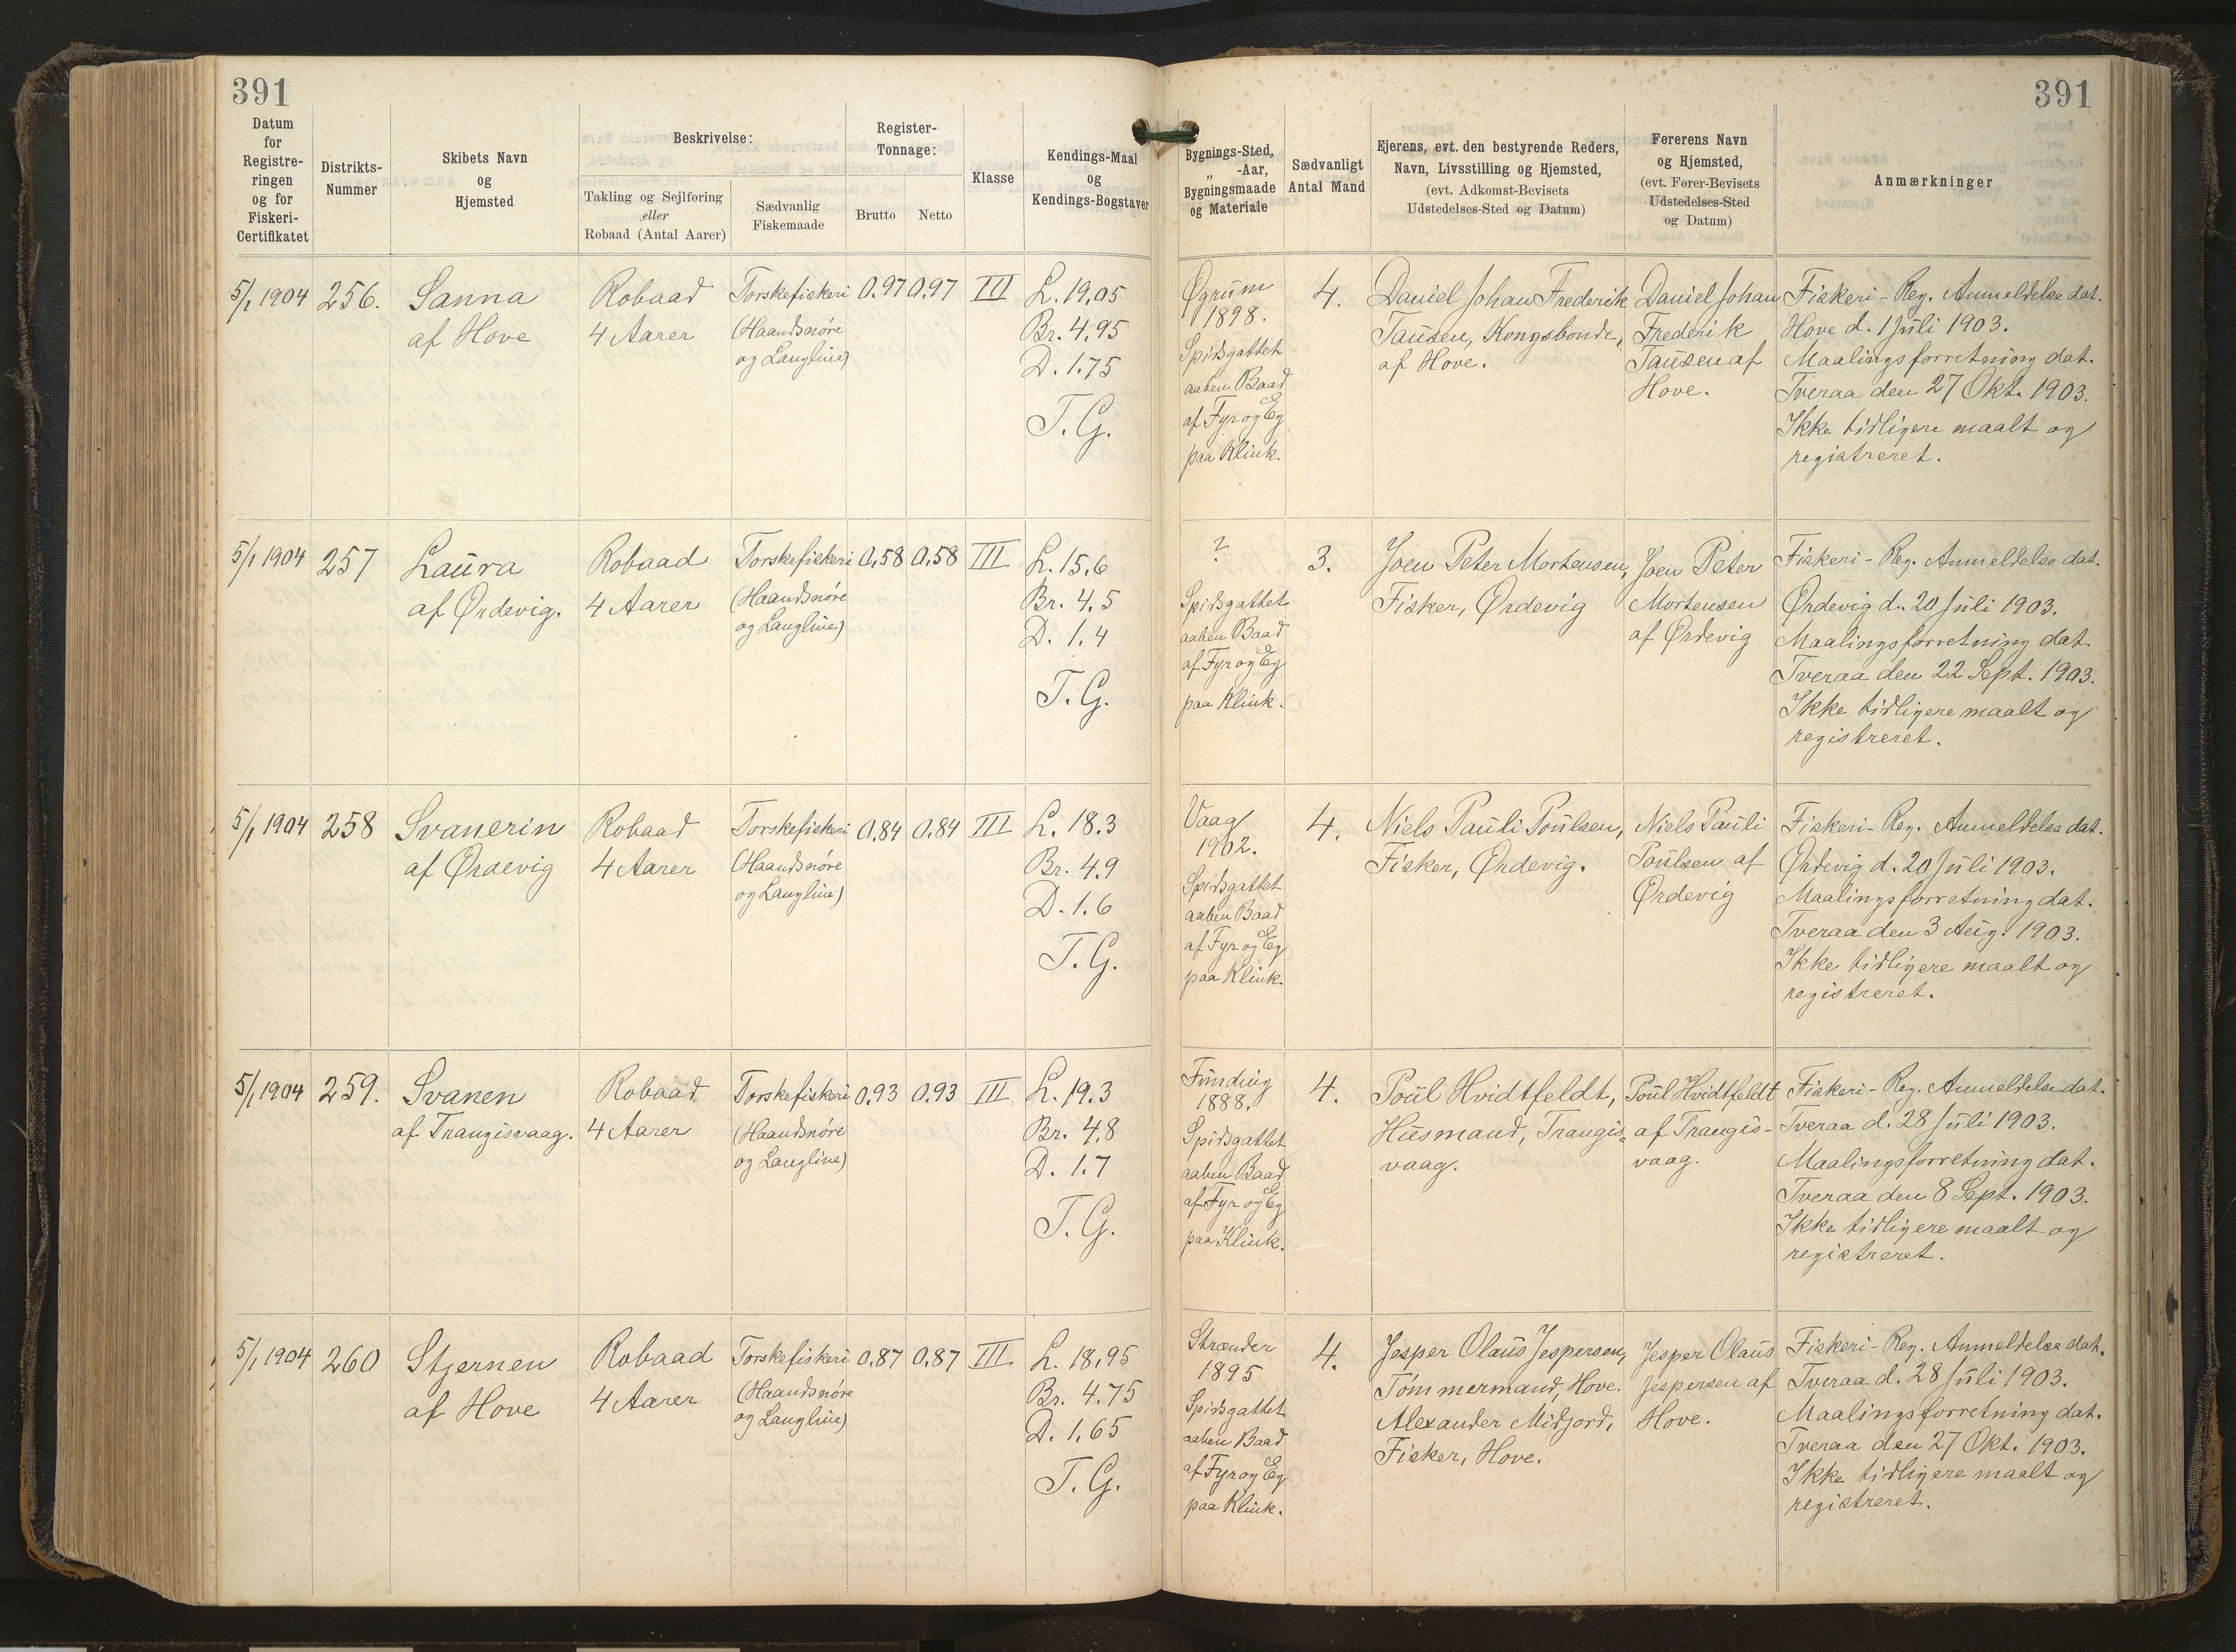 391
391
Datum
for
Registre-
ringen
og for
Fiskeri-
Certifikatet
Distrikts-
Nummer
Skibets Navn
og
Hjemsted
Beskrivelse:
Takling og Sejlføring
eller
Robaad (Antal Aarer)
Sædvanlig
Fiskemaade
Register-
Tonnage:
Brutto
Netto
Klasse
Kendings-Maal
og
Kendings-Bogstaver
Bygnings-Sted,
„ -Aar,
Bygningsmaade
og Materiale
Sædvanligt
Antal Mand
Ejerens, evt. den bestyrende Reders,
Navn, Livsstilling og Hjemsted,
(evt. Adkomst-Bevisets
Udstedelses-Sted og Datum)
Førerens Navn
og Hjemsted,
(evt. Fører-Bevisets
Udstedelses-Sted
og Datum)
Anmærkninger
5/1 1904
256.
Sanna
af Hove
Robaad
4 Aarer
Torskefiskeri
(Haandsnøre
og Langline)
0,97
0,97
III
L. 19,05
Br. 4,95
D. 1,75
T. G.
Øgrum
1898.
Spidsgattet
aaben Baad
af Fyr og Eg
paa Klink.
4.
Daniel Johan Frederik
Tausen, Kongsbonde,
af Hove.
Daniel Johan
Frederik
Tausen af
Hove.
Fiskeri-Reg. Anmeldelse dat.
Hove d. 1 Juli 1903.
Maalingsforretning dat.
Tveraa den 27 Okt. 1903.
Ikke tidligere maalt og
registreret.
5/1 1904
257
Laura
af Ørdevig.
Robaad
4 Aarer
Torskefiskeri
(Haandsnøre
og Langline)
0,58
0,58
III
L. 15,6
Br. 4,5
D. 1,4
T. G.
?
Spidsgattet
aaben Baad
af Fyr og Eg
paa Klink.
3.
Joen Peter Mortensen,
Fisker, Ørdevig
Joen Peter
Mortensen
af Ørdevig
Fiskeri-Reg. Anmeldelse dat.
Ørdevig d. 20 Juli 1903.
Maalingsforretning dat.
Tveraa den 22 Sept. 1903.
Ikke tidligere maalt og
registreret.
5/1 1904
258
Svanerin
af Ørdevig
Robaad
4 Aarer
Torskefiskeri
(Haandsnøre
og Langline)
0,84
0,84
III
L. 18,3
Br. 4,9
D. 1,6
T. G.
Vaag
1902.
Spidsgattet
aaben Baad
af Fyr og Eg
paa Klink.
4.
Niels Pauli Poulsen,
Fisker, Ørdevig.
Niels Pauli
Poulsen af
Ørdevig
Fiskeri-Reg. Anmeldelse dat.
Ørdevig d. 20 Juli 1903.
Maalingsforretning dat.
Tveraa den 3 Aug. 1903.
Ikke tidligere maalt og
registreret.
5/1 1904
259.
Svanen
af Trangisvaag.
Robaad
4 Aarer
Torskefiskeri
(Haandsnøre
og Langline)
0,93
0,93
III
L. 19,3
Br. 4,8
D. 1,7
T. G.
Funding
1888.
Spidsgattet
aaben Baad
af Fyr og Eg
paa Klink.
4.
Poul Hvidtfeldt,
Husmand, Trangis-
vaag.
Poul Hvidtfeldt
af Trangis-
vaag.
Fiskeri-Reg. Anmeldelse dat.
Tveraa d. 28 Juli 1903.
Maalingsforretning dat.
Tveraa den 8 Sept. 1903.
Ikke tidligere maalt og
registreret.
5/1 1904
260
Stjernen
af Hove
Robaad
4 Aarer
Torskefiskeri
(Haandsnøre
og Langline)
0,87
0,87
III
L. 18,95
Br. 4,75
D. 1,65
T. G.
Strænder
1895
Spidsgattet
aaben Baad
af Fyr og Eg
paa Klink.
4.
Jesper Olaus Jespersen,
Tömmermand, Hove.
Alexander Midjord,
Fisker, Hove.
Jesper Olaus
Jespersen af
Hove.
Fiskeri-Reg. Anmeldelse dat.
Tveraa d. 28 Juli 1903.
Maalingsforretning dat.
Tveraa den 27 Okt. 1903.
Ikke tidligere maalt og
registreret.